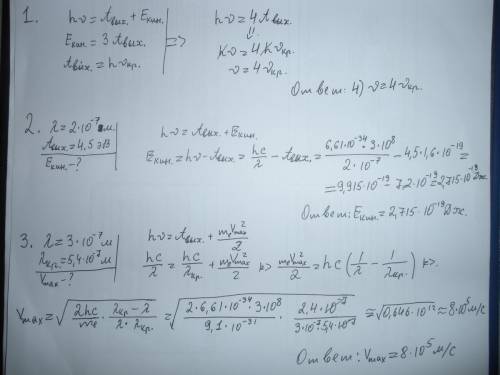 1. hν = Aвых. + Eкин.
Eкин. = 3 Aвых.
Aвых. = hνкр.
=> hν = 4 Aвых.
⇓
hν = 4 hνкр.
ν = 4 νкр.
Ответ: 4) ν = 4 νкр.
2. λ = 2·10⁻⁷ м.
Aвых. = 4,5 эВ
Eкин. - ?
hν = Aвых. + Eкин.
Eкин. = hν - Aвых. = hc/λ - Aвых. = 6,61·10⁻³⁴·3·10⁸ / 2·10⁻⁷ - 4,5·1,6·10⁻¹⁹ =
= 9,915·10⁻¹⁹ - 7,2·10⁻¹⁹ = 2,715·10⁻¹⁹ Дж.
Ответ: Eкин. = 2,715·10⁻¹⁹ Дж.
3. λ = 3·10⁻⁷ м
λкр. = 5,4·10⁻⁷ м
Vmax - ?
hν = Aвых. + mₑVmax²/2
hc/λ = hc/λкр. + mₑVmax²/2 => mₑVmax²/2 = hc (1/λ - 1/λкр.) =>
Vmax = √(2hc/mₑ · (λкр. - λ)/(λ·λкр.)) = √(2·6,61·10⁻³⁴·3·10⁸ / 9,1·10⁻³¹ · 2,4·10⁻⁷ / 3·10⁻⁷·5,4·10⁻⁷) ≈ √0,646·10¹² ≈ 8·10⁵ м/с
Ответ: Vmax = 8·10⁵ м/с